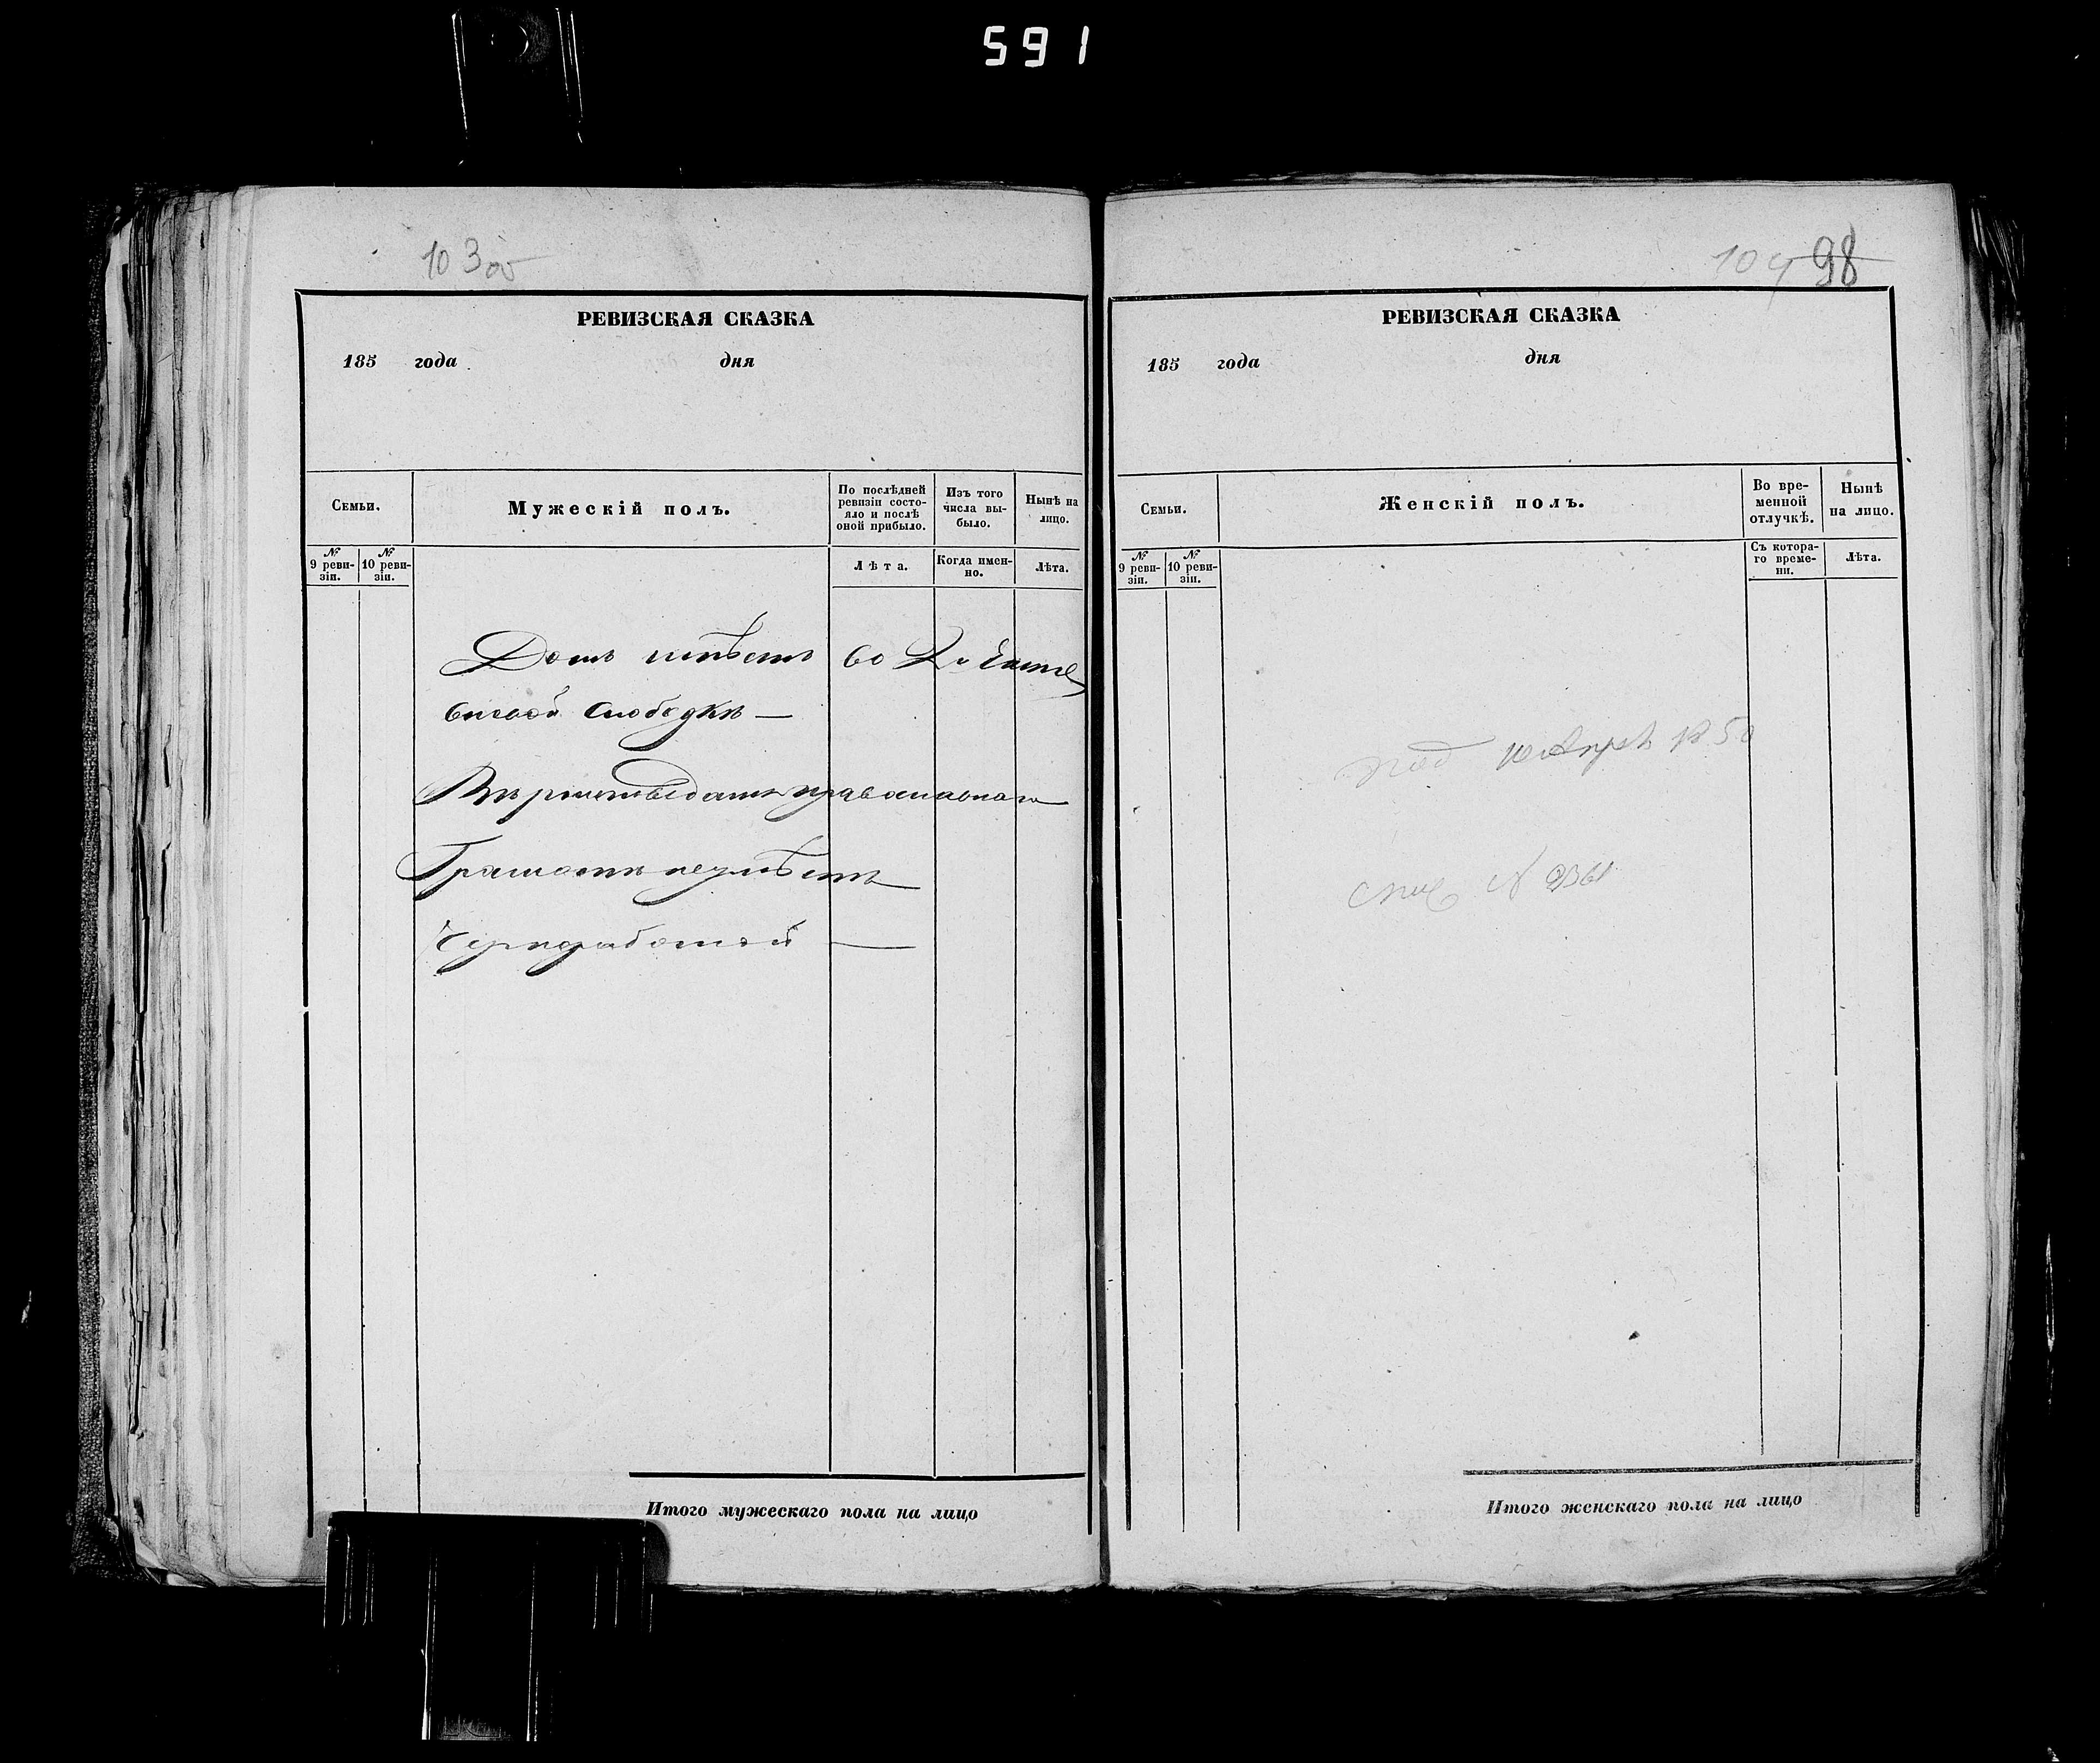 591
103 об
РЕВИЗСКАЯ СКАЗКА
185 года дня
Семьи.
Мужескій полъ.
По послѣдней
ревизіи состо-
яло и послѣ
оной прибыло.
Изъ того
числа вы-
было.
Нынѣ на
лицо.
№
9 реви-
зіи.
№
10 реви-
зіи.
Лѣта.
Когда имен-
но.
Лѣта.
Домъ имѣетъ во 2й Части
слободкѣ —
православнаго
Грамотѣ неумѣетъ
Чернорабочій —
Итого мужескаго пола на лицо
104 98
РЕВИЗСКАЯ СКАЗКА
185 года дня
Семьи.
Женскій полъ.
Во вре-
менной
отлучкѣ.
Нынѣ
на лицо.
№
9 реви-
зіи.
№
10 реви-
зіи.
Съ котора-
го време-
ни.
Лѣта.
50
№
Итого женскаго пола на лицо